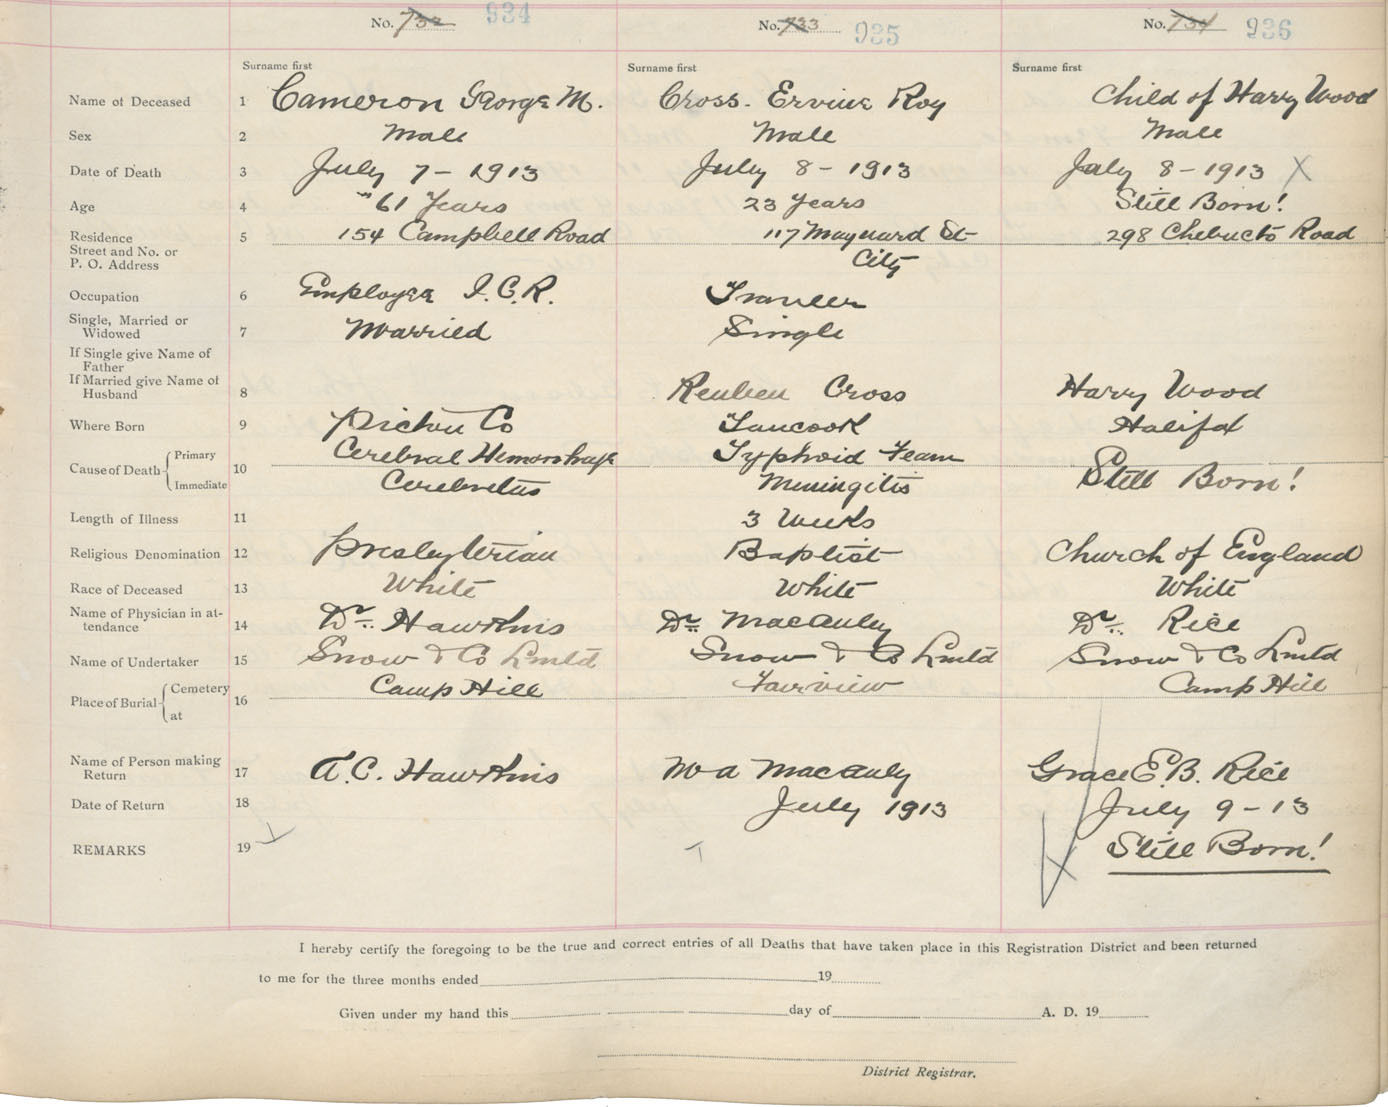 No. 732 934 No. 733 935 No. 734 936
Surname first Surname first Surname first
Name of Deceased 1 Cameron George M. Cross. Ervine Roy Child of Harry Wood
Sex 2 Male Male Male
Date of Death 3 July 7 - 1913 July 8 - 1913 July 8 - 1913 X
Age 4 "61 Years 23 Years Still Born!
Residence 5 154 Campbell Road 117 Maynard St 298 Chebucto Road
Street and No. or
P. O. Address City
Occupation 6 Employee I.C.R.
Single, Married or
Widowed 7 Married Single
If Single give Name of
Father
If Married give Name of
Husband 8 Reuben Cross Harry Wood
Where Born 9 Pictou Co Tancook Halifax
Cause of Death Primary 10 Cerebral Hemorrhage Typhoid
Immediate Meningitis Still Born!
Length of Illness 11 3 Weeks
Religious Denomination 12 Presbyterian Baptist Church of England
Race of Deceased 13 White White White
Name of Physician in at-
tendance 14 Dr. Hawkins Dr. Macauley Dr. Rice
Name of Undertaker 15 Snow & Co Lmtd Snow & Co Lmtd Snow & Co Lmtd
Place of Burial Cemetery 16 Camp Hill Fairview Camp Hill
at
Name of Person making
Return 17 A.C. Hawkins M a Macauly Grace E.B. Rice
Date of Return 18 July 1913 July 9 - 13
REMARKS 19 Still Born!
I hereby certify the foregoing to be the true and correct entries of all Deaths that have taken place in this Registration District and been returned
to me for the three months ended 19
Given under my hand this day of A. D. 19
District Registrar.